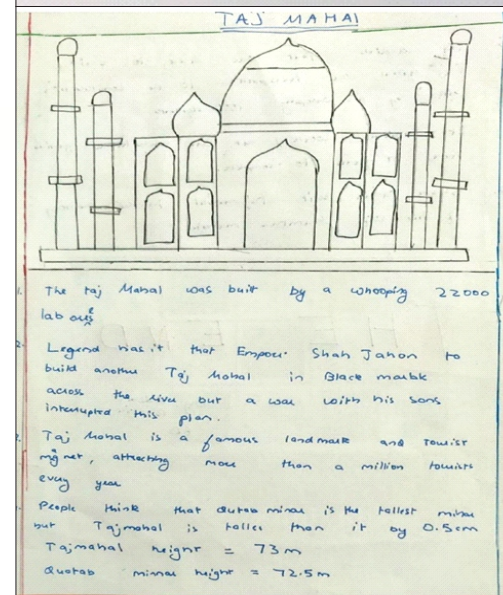 TAJ MAHAl
1. The taj Mahal was built by a whooping 22000
labours
2. Legend has it that Empour Shah Jahon to
build another Taj Mahal in Black marble
across the river but a war with his sons
interrupted this plan.
Taj Mahal is a famous landmark and tourist
magnet, attracting more than a million tourists
every year
People think that Qutab minar is the tallest minar
but Tajmahal is taller than it by 0.5cm
Tajmahal height = 73m
Quotab minar height = 72.5m